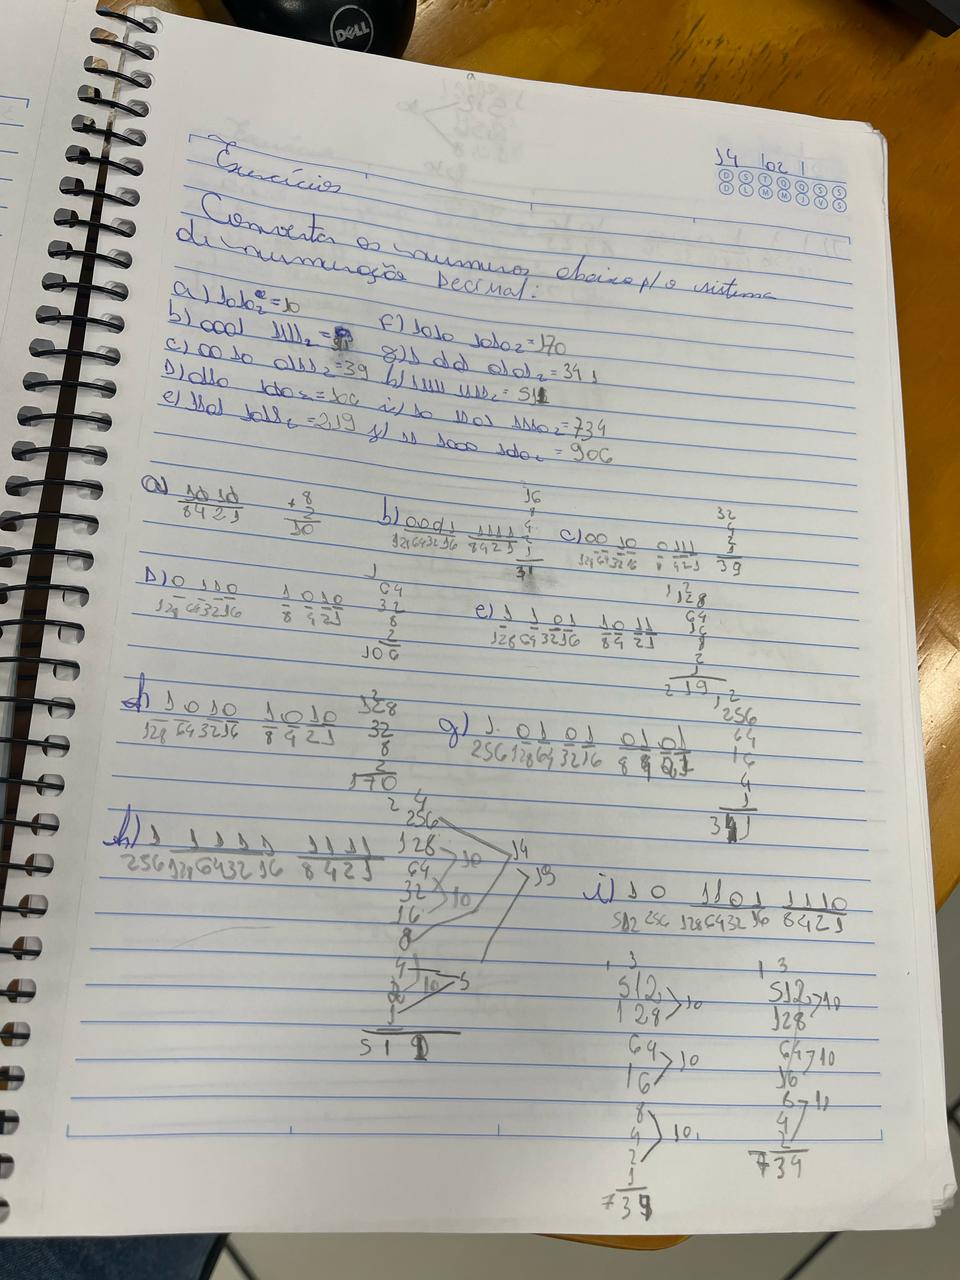 DELL
14 02
D S T Q Q S S
D L M M J V S
Exercícios
Converta os numeros abaixo p/ o sistema
de numeração Decimal:
a) 1010₂ = 10
b) 0001 1111₂ = 31 f) 1010 1010₂ = 170
c) 00 10 0111₂ = 39 g) 1 0101 0101₂ = 341
D) 0110 1010₂ = 106 h) 1 1111 1111₂ = 511
e) 1101 1011₂ = 219 i) 10 1101 1110₂ = 734
j) 11 1000 1010₂ = 906
a) 10 10
8 4 2 1
+ 8
2
10
b) 0001 1111
128 64 32 16 8 4 2 1
16
8
4
2
1
31
c) 00 10 0111
128 64 32 16 8 4 2 1
32
4
2
1
39
D) 0 110 1 0 10
128 64 32 16 8 4 2 1
1
64
32
8
2
106
e) 1 1 01 10 11
128 64 32 16 8 4 2 1
1 2
128
64
16
8
2
1
219
f) 1 0 10 1 0 10
128 64 32 16 8 4 2 1
2
128
32
8
2
170
g) 1 01 01 01 01
256 128 64 32 16 8 4 2 1
1 2
256
64
16
4
1
341
h) 1 1 1 1 1 1 1 1 1
256 128 64 32 16 8 4 2 1
2 4
256
128
64
32
16
8
4
2
1
511
10
10
14
19
10
5
i) 1 0 1101 1110
512 256 128 64 32 16 8 4 2 1
1 3
512
128
64
16
8
4
2
1
739
10
10
10
1 3
512
128
64
16
8
4
2
734
10
10